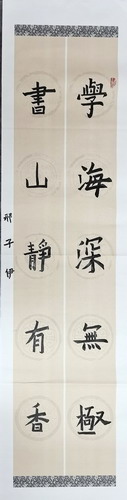 學海深無極
書山靜有香
祁子伊